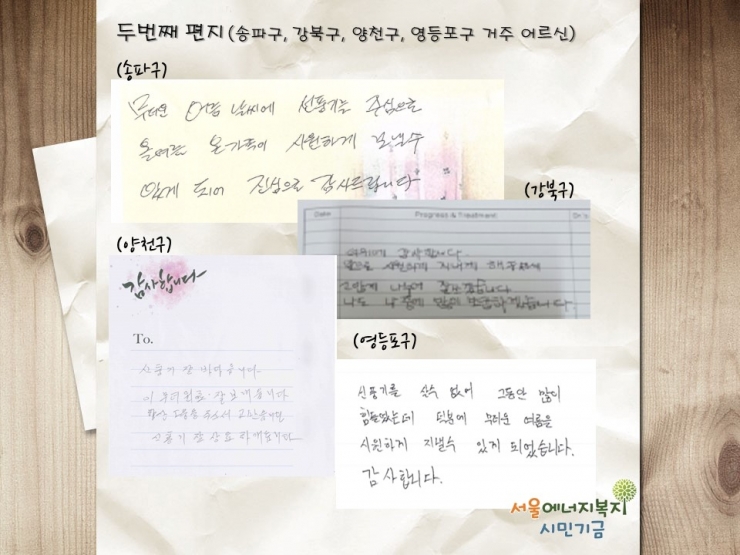 두번째 편지 (송파구, 강북구, 양천구, 영등포구 거주 어르신)
(송파구)
무더운 여름 날씨에 선풍기를 주심으로
올여름 온가족이 시원하게 보낼수
있게 되어 진심으로 감사드립니다
(강북구)
Date Progress & Treatment Dr's
감사합니다.
시원하게 지내게 해
고맙게
나도 나중에 많이 보답하겠습니다.
(양천구)
감사합니다
To.
선풍기 잘 받았습니다.
이 무더위를 잘 보내겠습니다
선풍기 잘 사용 하겠습니다
(영등포구)
선풍기를 살수 없어 그동안 많이
힘들었는데 덕분에 무더운 여름을
시원하게 지낼수 있게 되었습니다.
감사합니다.
서울에너지복지
시민기금